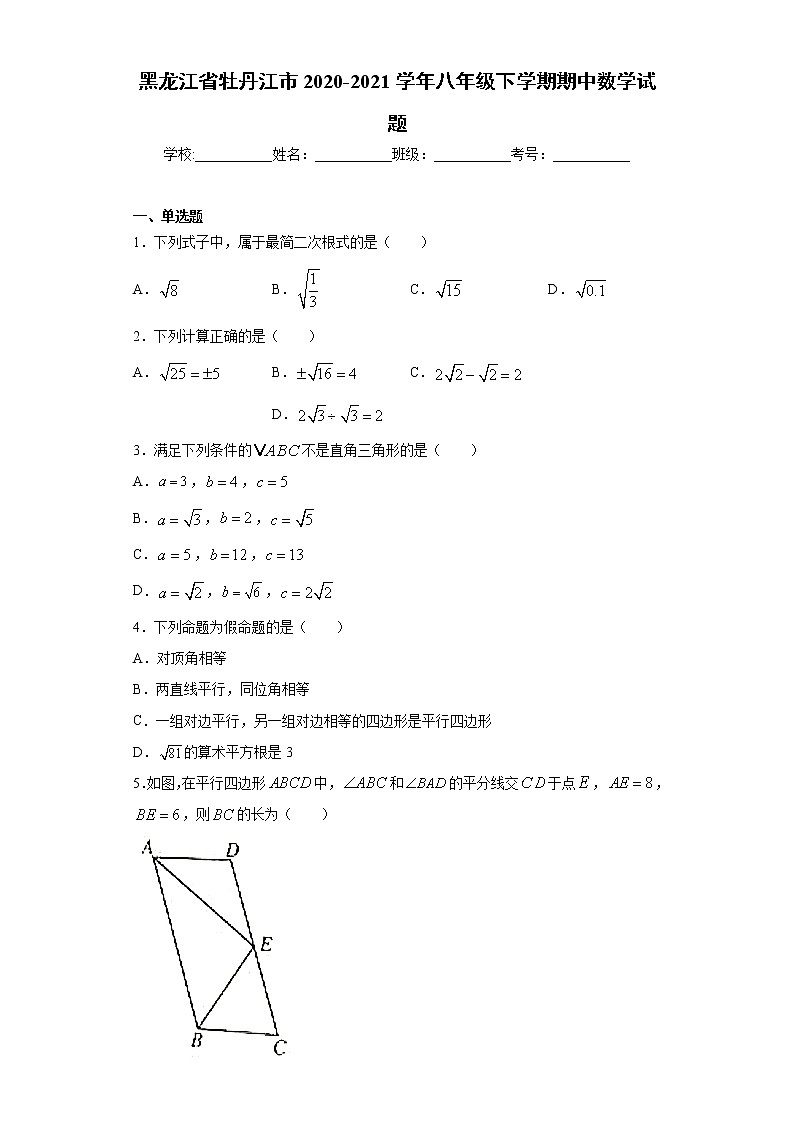 黑龙江省牡丹江市 2020-2021 学年八年级下学期期中数学试
题
学校:___________姓名：___________班级：___________考号：___________
一、单选题
1．下列式子中，属于最简二次根式的是（　　）
A．√8　B．√(1/3)　C．√15　D．√0.1
2．下列计算正确的是（　　）
A．√25 = ±5　B．±√16 = 4　C．2√2 − √2 = 2
D．2√3 ÷ √3 = 2
3．满足下列条件的VABC不是直角三角形的是（　　）
A．a = 3，b = 4，c = 5
B．a = √3，b = 2，c = √5
C．a = 5，b = 12，c = 13
D．a = √2，b = √6，c = 2√2
4．下列命题为假命题的是（　　）
A．对顶角相等
B．两直线平行，同位角相等
C．一组对边平行，另一组对边相等的四边形是平行四边形
D．√81的算术平方根是 3
5.如图,在平行四边形 ABCD 中，∠ABC 和∠BAD 的平分线交 CD 于点 E，AE = 8，
BE = 6，则 BC 的长为（　　）
A
D
E
B
C